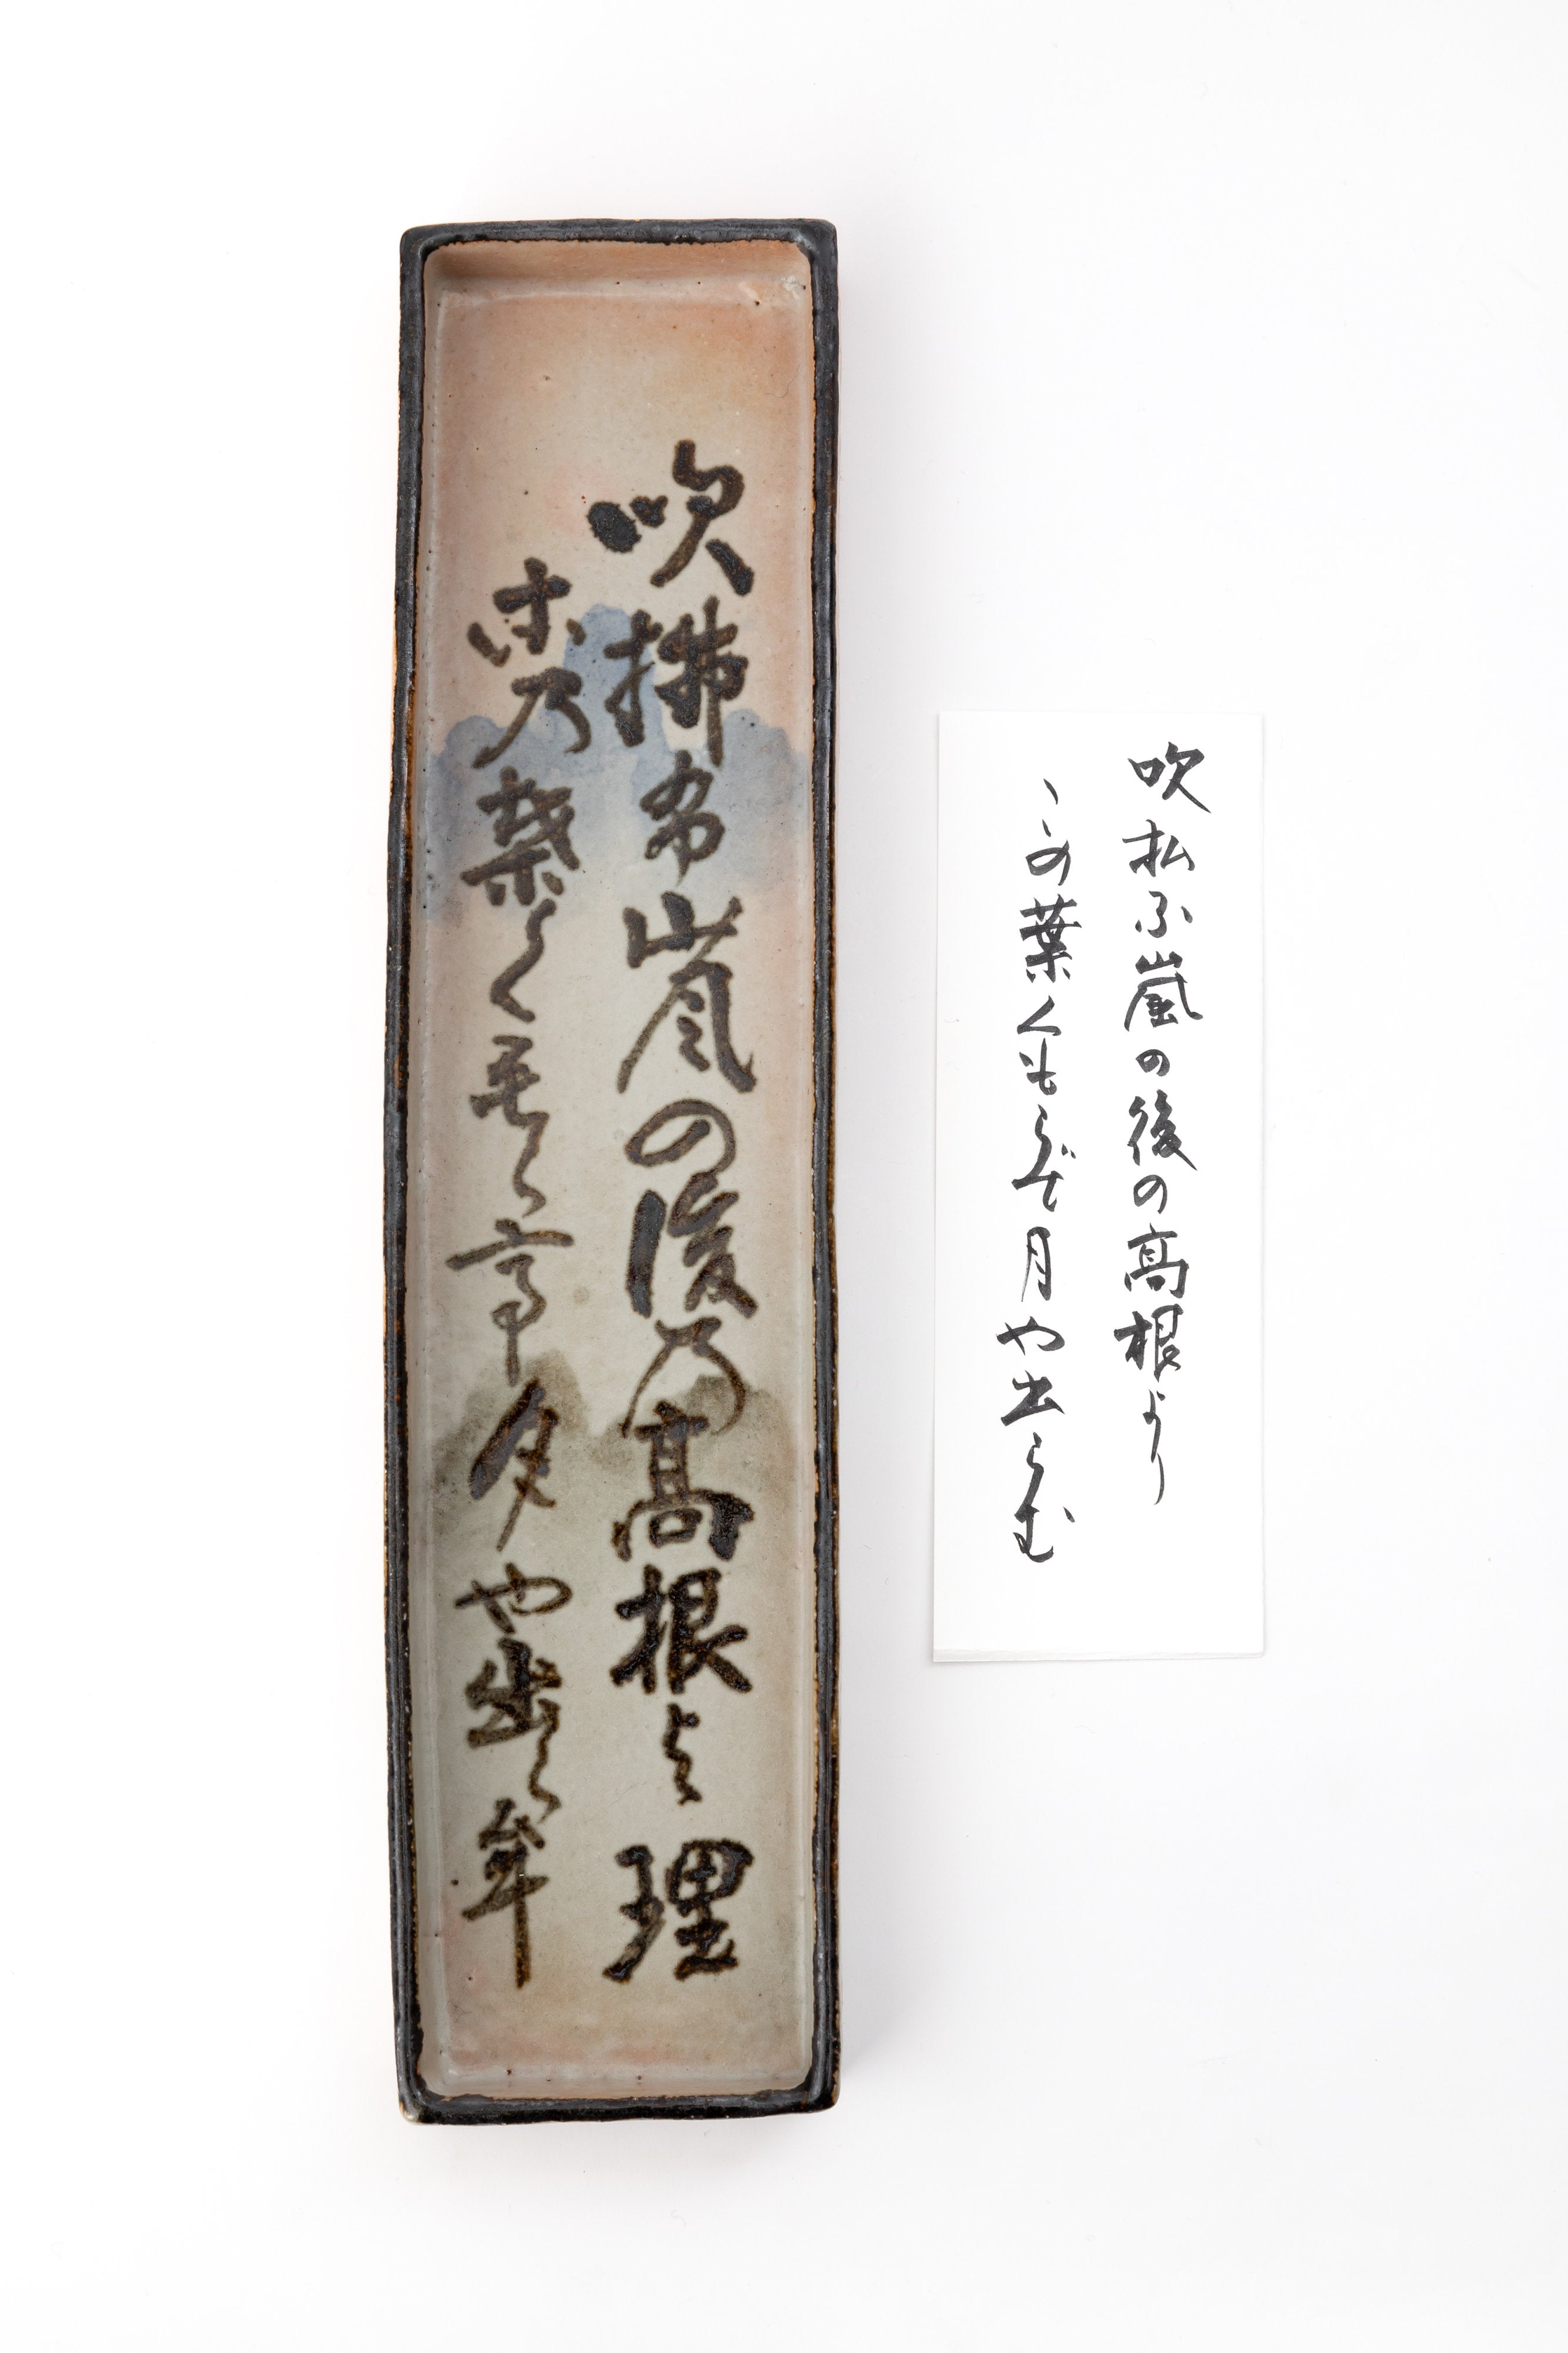 吹拂布嵐の後乃高根よ理
木乃葉く毛ら亭月や出ら牟
吹払ふ嵐の後の高根より
この葉くもらで月や出らむ